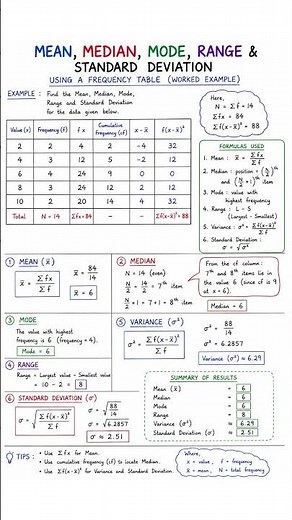 MEAN, MEDIAN, MODE, RANGE &
STANDARD DEVIATION
USING A FREQUENCY TABLE (WORKED EXAMPLE)
EXAMPLE : Find the Mean, Median, Mode,
Range and Standard Deviation
for the data given below.
Here,
N = Σf = 14
Σfx = 84
Σf(x-x̄)² = 88
Value (x) Frequency (f) f x Cumulative frequency (cf) x - x̄ f(x-x̄)²
2 2 4 2 -4 32
4 3 12 5 -2 12
6 4 24 9 0 0
8 3 24 12 2 12
10 2 20 14 4 32
Total N = 14 Σfx=84 — — Σf(x-x̄)²=88
FORMULAS USED
1. Mean : x̄ = Σfx / Σf
2. Median : position = (N/2)th
and (N/2 + 1)th item
3. Mode : value with
highest frequency
4. Range : L - S
(Largest - Smallest)
5. Variance : σ² = Σf(x-x̄)² / Σf
6. Standard Deviation :
σ = √σ²
1 MEAN (x̄)
x̄ = Σfx / Σf
x̄ = 84 / 14
x̄ = 6
2 MEDIAN
N = 14 (even)
N/2 = 14/2 = 7th item
N/2 + 1 = 7 + 1 = 8th item
From the cf column :
7th and 8th items lie in
the value 6 (since cf is 9
at x = 6).
Median = 6
3 MODE
The value with highest
frequency is 6 (frequency = 4).
Mode = 6
4 RANGE
Range = Largest value - Smallest value
= 10 - 2 = 8
5 VARIANCE (σ²)
σ² = Σf(x-x̄)² / Σf
σ² = 88 / 14
σ² = 6.2857
Variance (σ²) = 6.29
6 STANDARD DEVIATION (σ)
σ = √(Σf(x-x̄)² / Σf)
σ = √(88 / 14)
σ = √6.2857
σ ≈ 2.51
SUMMARY OF RESULTS
Mean (x̄) = 6
Median = 6
Mode = 6
Range = 8
Variance (σ²) ≈ 6.29
Standard Deviation (σ) ≈ 2.51
TIPS :
• Use Σfx for Mean.
• Use cumulative frequency (cf) to locate Median.
• Use Σf(x-x̄)² for Variance and Standard Deviation.
Where,
x = value , f = frequency
x̄ = mean , N = total frequency